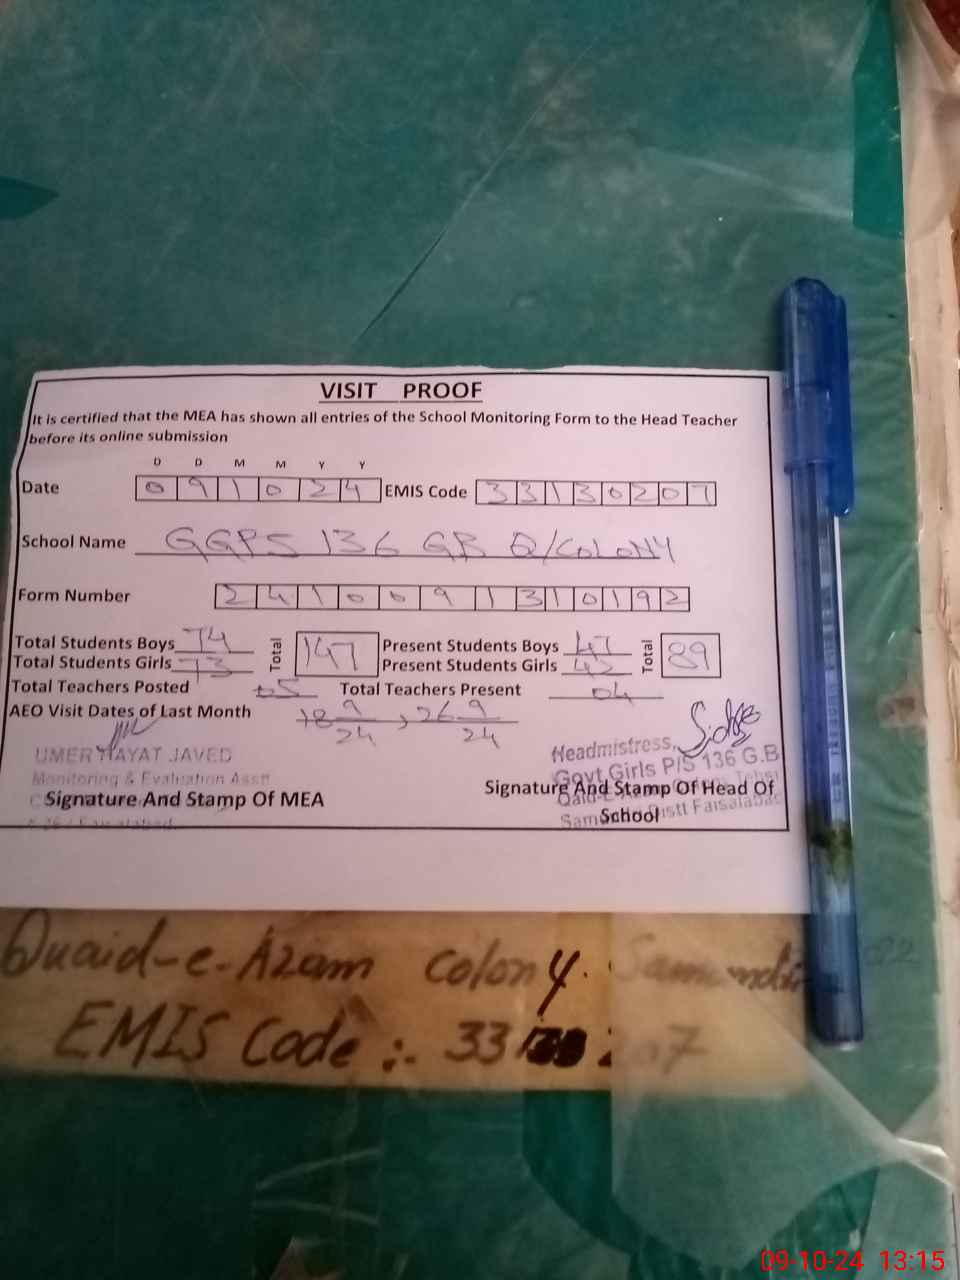 VISIT PROOF
It is certified that the MEA has shown all entries of the School Monitoring Form to the Head Teacher
before its online submission
D D M M Y Y
Date 0 9 1 0 2 4 EMIS Code 3 3 1 3 0 2 0 7
School Name GGPS 136 GB Q/COLONY
Form Number 2 4 1 0 0 9 1 3 1 0 1 9 2
Total Students Boys 74 Total 147 Present Students Boys 47 Total 89
Total Students Girls 73 Present Students Girls 42
Total Teachers Posted 05 Total Teachers Present 04
AEO Visit Dates of Last Month 18 9/24 , 26 9/24
UMER HAYAT JAVED
Monitoring & Evaluation Asstt
Signature And Stamp Of MEA
Headmistress,
Govt Girls P/S 136 G.B
Signature And Stamp Of Head Of
School
Distt Faisalabad
Quaid-e-Azam Colony.
EMIS Code :- 33 207
09-10-24 13:15